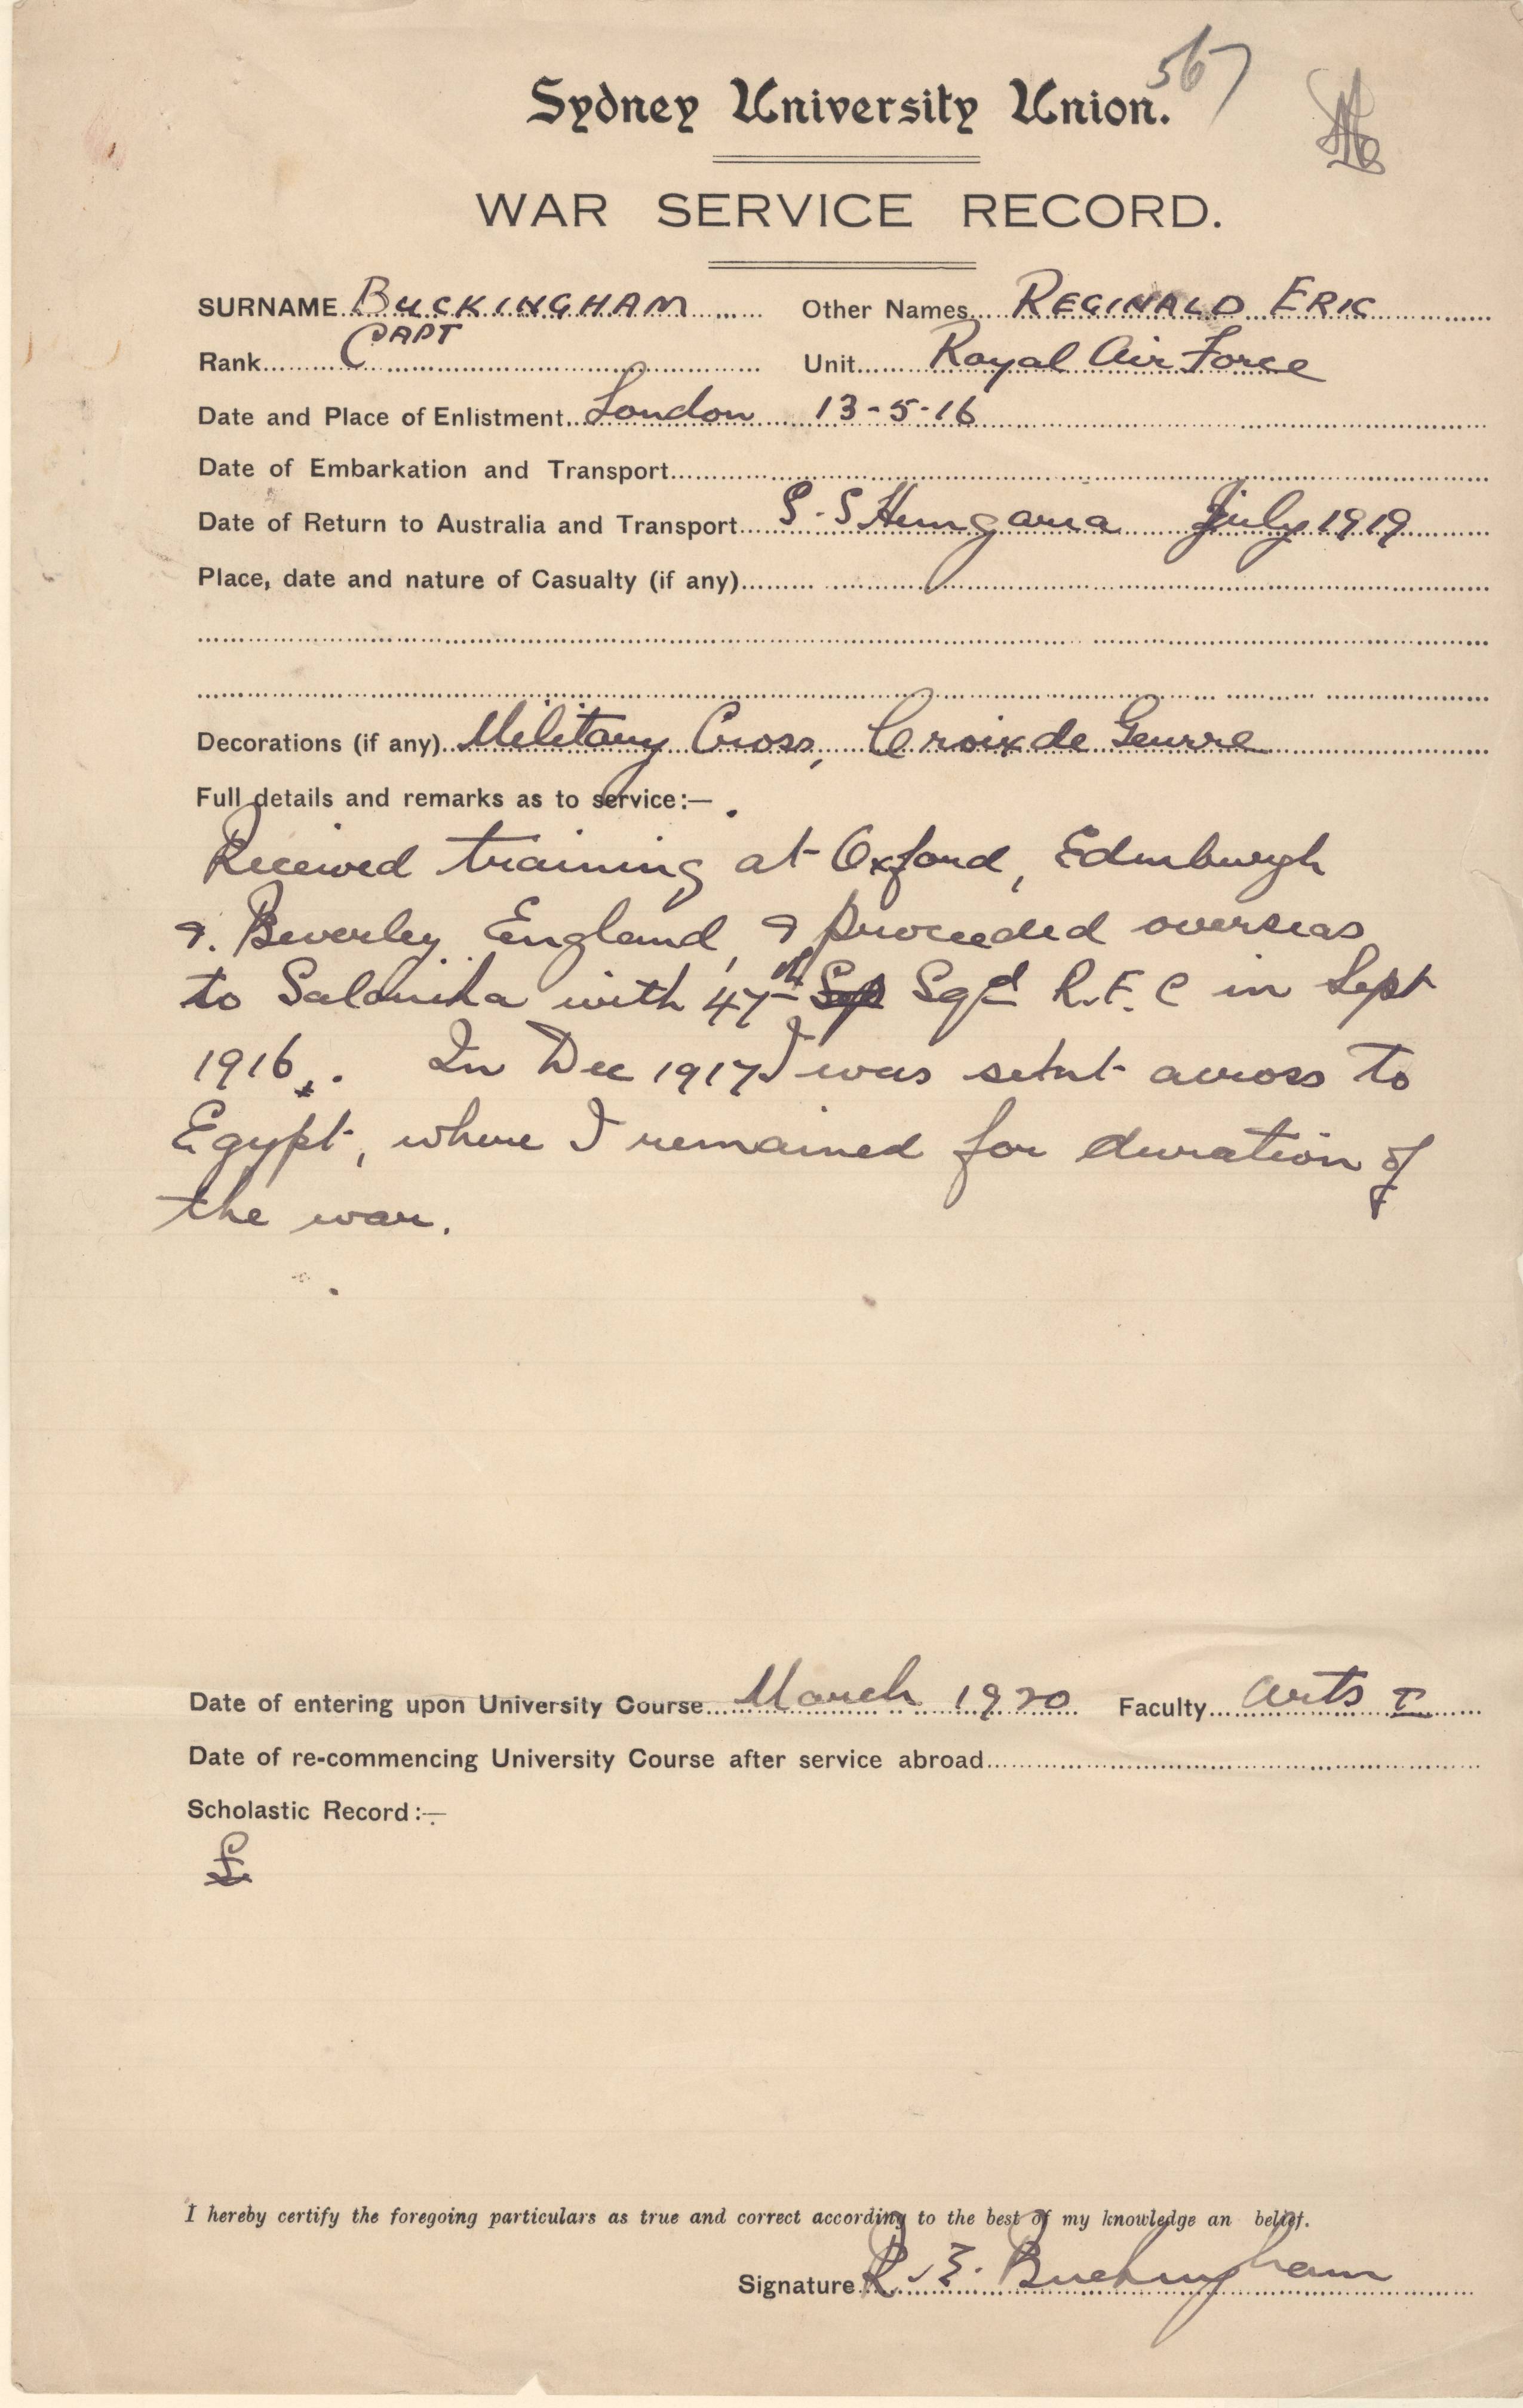 567
Sydney University Union.
WAR SERVICE RECORD.
SURNAME BUCKINGHAM Other Names REGINALD ERIC
Rank CAPT Unit Royal Air Force
Date and Place of Enlistment London 13-5-16
Date of Embarkation and Transport
Date of Return to Australia and Transport S.S Hungaria July 1919
Place, date and nature of Casualty (if any)
Decorations (if any) Military Cross, Croix de Geurre
Full details and remarks as to service:—
Received training at Oxford, Edinburgh
&. Beverley England, & proceeded overseas
to Salonika with 47th Sqd R.F.C in Sept
1916. In Dec 1917 I was sent across to
Egypt, where I remained for duration of
the war.
Date of entering upon University Course March 1920 Faculty Arts I
Date of re-commencing University Course after service abroad
Scholastic Record:—
I hereby certify the foregoing particulars as true and correct according to the best of my knowledge an belief.
Signature R. E. Buckingham